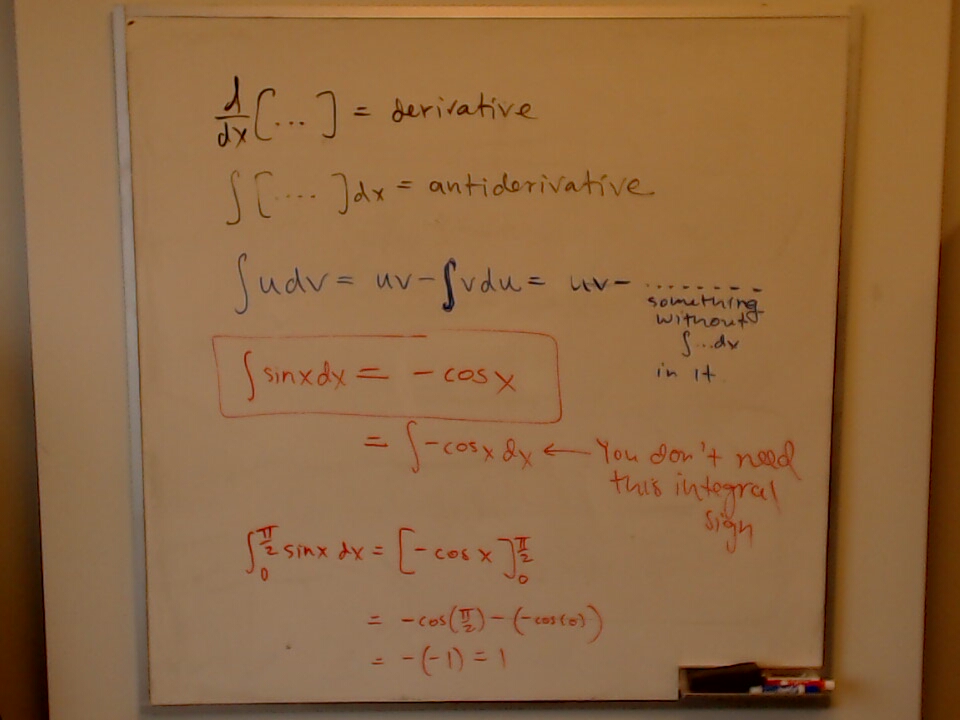 d/dx [...] = derivative
∫ [....] dx = antiderivative
∫ u dv = uv - ∫ v du = uv - ........
something
without
∫...dx
in it
∫ sinx dx = - cos x
= ∫ -cos x dx ← You don't need
this integral
sign
∫₀^{π/2} sinx dx = [- cos x]₀^{π/2}
= -cos(π/2) - (-cos(0))
= -(-1) = 1